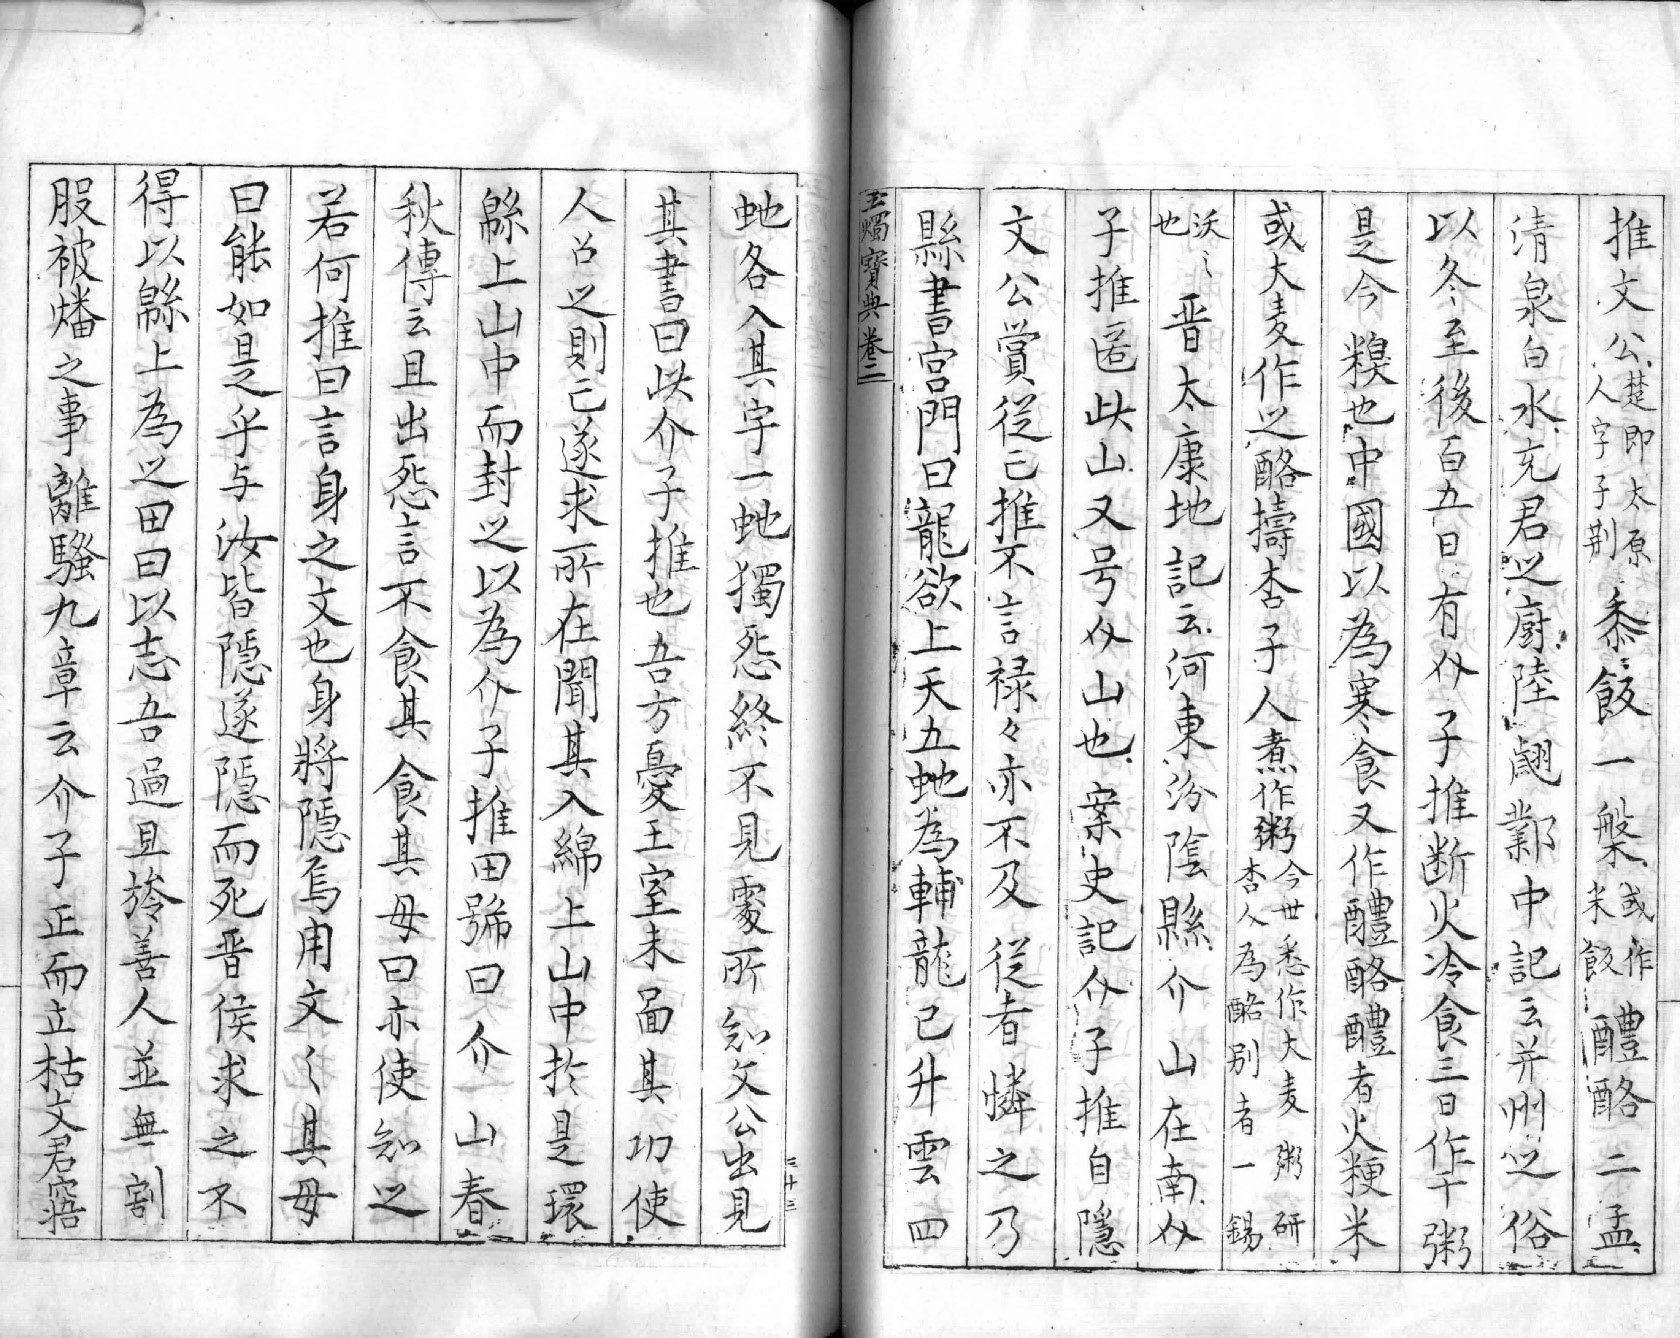 推文公楚即太原人字子荆黍飯一槃或作米飯醴酪二盂
清泉白水充君之廚陸翽鄴中記云并州之俗
以冬至後百五日有介子推断火冷食三日作干粥
是今糗也中國以為寒食又作醴酪醴者火粳米
或大麦作之酪擣杏子人煮作粥今世悉作大麦粥研杏人為酪别者一錫
沃〻也晋太康地記云河東汾陰縣介山在南介
子推匿此山又号介山也案史記介子推自隱
文公賞從已推不言禄々亦不及從者憐之乃
縣書宮門曰龍欲上天五虵為輔龍已升雲四
玉燭寶典卷二
虵各入其宇一虵獨怨終不見處所文公出見
其書曰此介子推也吾方憂王室未啚其功使
人召之則已遂求所在聞其入綿上山中於是環
緜上山中而封之以為介子推田號曰介山春
秋傳云且出怨言不食其食其母曰亦使知之
若何推曰言身之文也身將隱焉用文〻其母
曰能如是乎与汝皆隱遂隱而死晋侯求之不
得以緜上為之田曰以志吾過且旍善人並無割
股被燔之事離騷九章云介子正而立枯文君寤